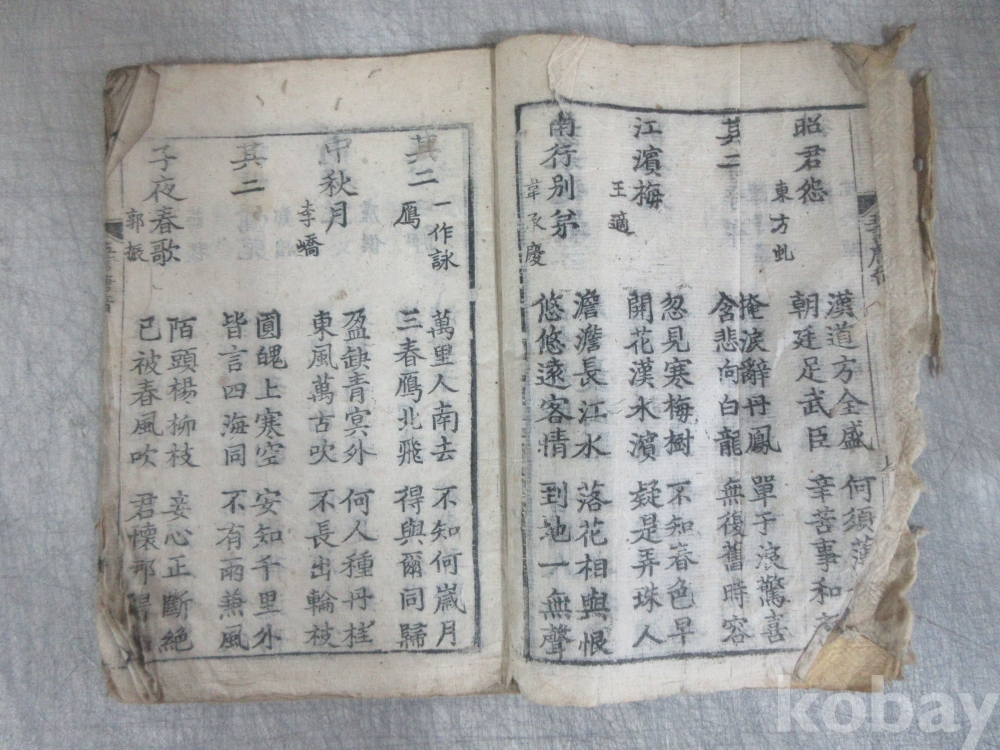 昭君怨
東方虬
漢道方全盛 何須薄
朝廷足武臣 辛苦事和
其二
掩淚辭丹鳳 單于浪驚喜
含悲向白龍 無復舊時容
江濱梅
王適
忽見寒梅樹 不知春色早
開花漢水濱 疑是弄珠人
南行別弟
韋承慶
澹澹長江水 落花相與恨
悠悠遠客情 到地一無聲
其二 一作詠鴈
萬里人南去 不知何歲月
三春鴈北飛 得與爾同歸
中秋月
李嶠
盈缺青冥外 何人種丹桂
東風萬古吹 不長出輪枝
其二
圓魄上寒空 安知千里外
皆言四海同 不有雨兼風
子夜春歌
郭振
陌頭楊柳枝 妾心正斷絕
已被春風吹 君懷那得
kobay